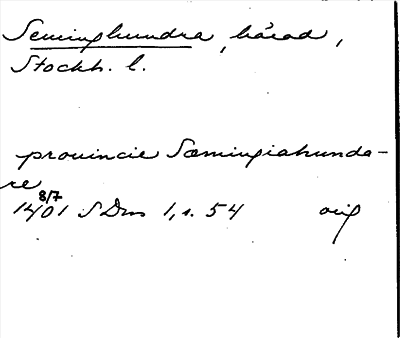 Seminghundra, härad,
Stockh. l.
prouincie Sæmingiahunda-
re
8/7
1401 SDns 1, s. 54 orig